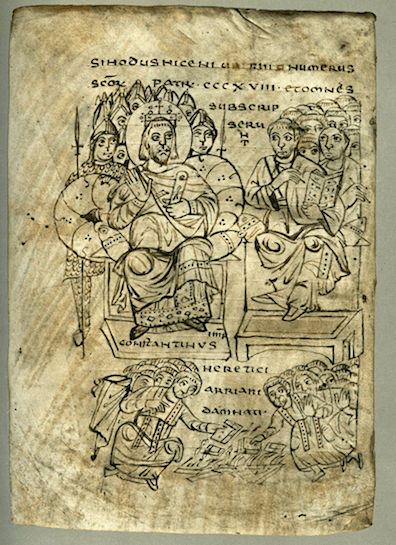 SINODUS NICENI NUMERUS
SCŌR · PATR · CCCXVIII · ET OMNES
SUBSCRIP
SERU
NT
IMP
CONSTANTINUS
HERETICI
ARRIANI
DAMNATI ·